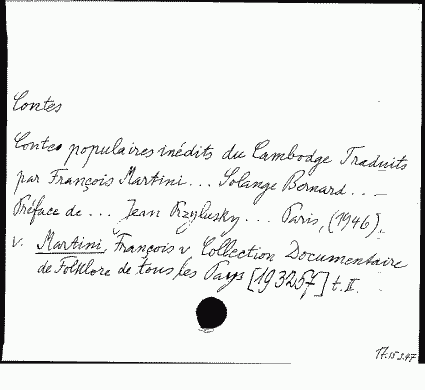 Contes
Contes populaires inédits du Cambodge Traduits
par François Martini... Solange Bernard...-
Préface de... Jean Przylusky... Paris, (1946).
v. Martini, François v Collection Documentaire
de Folklore de tous les Pays [193257] t. II.
17.15.3.47